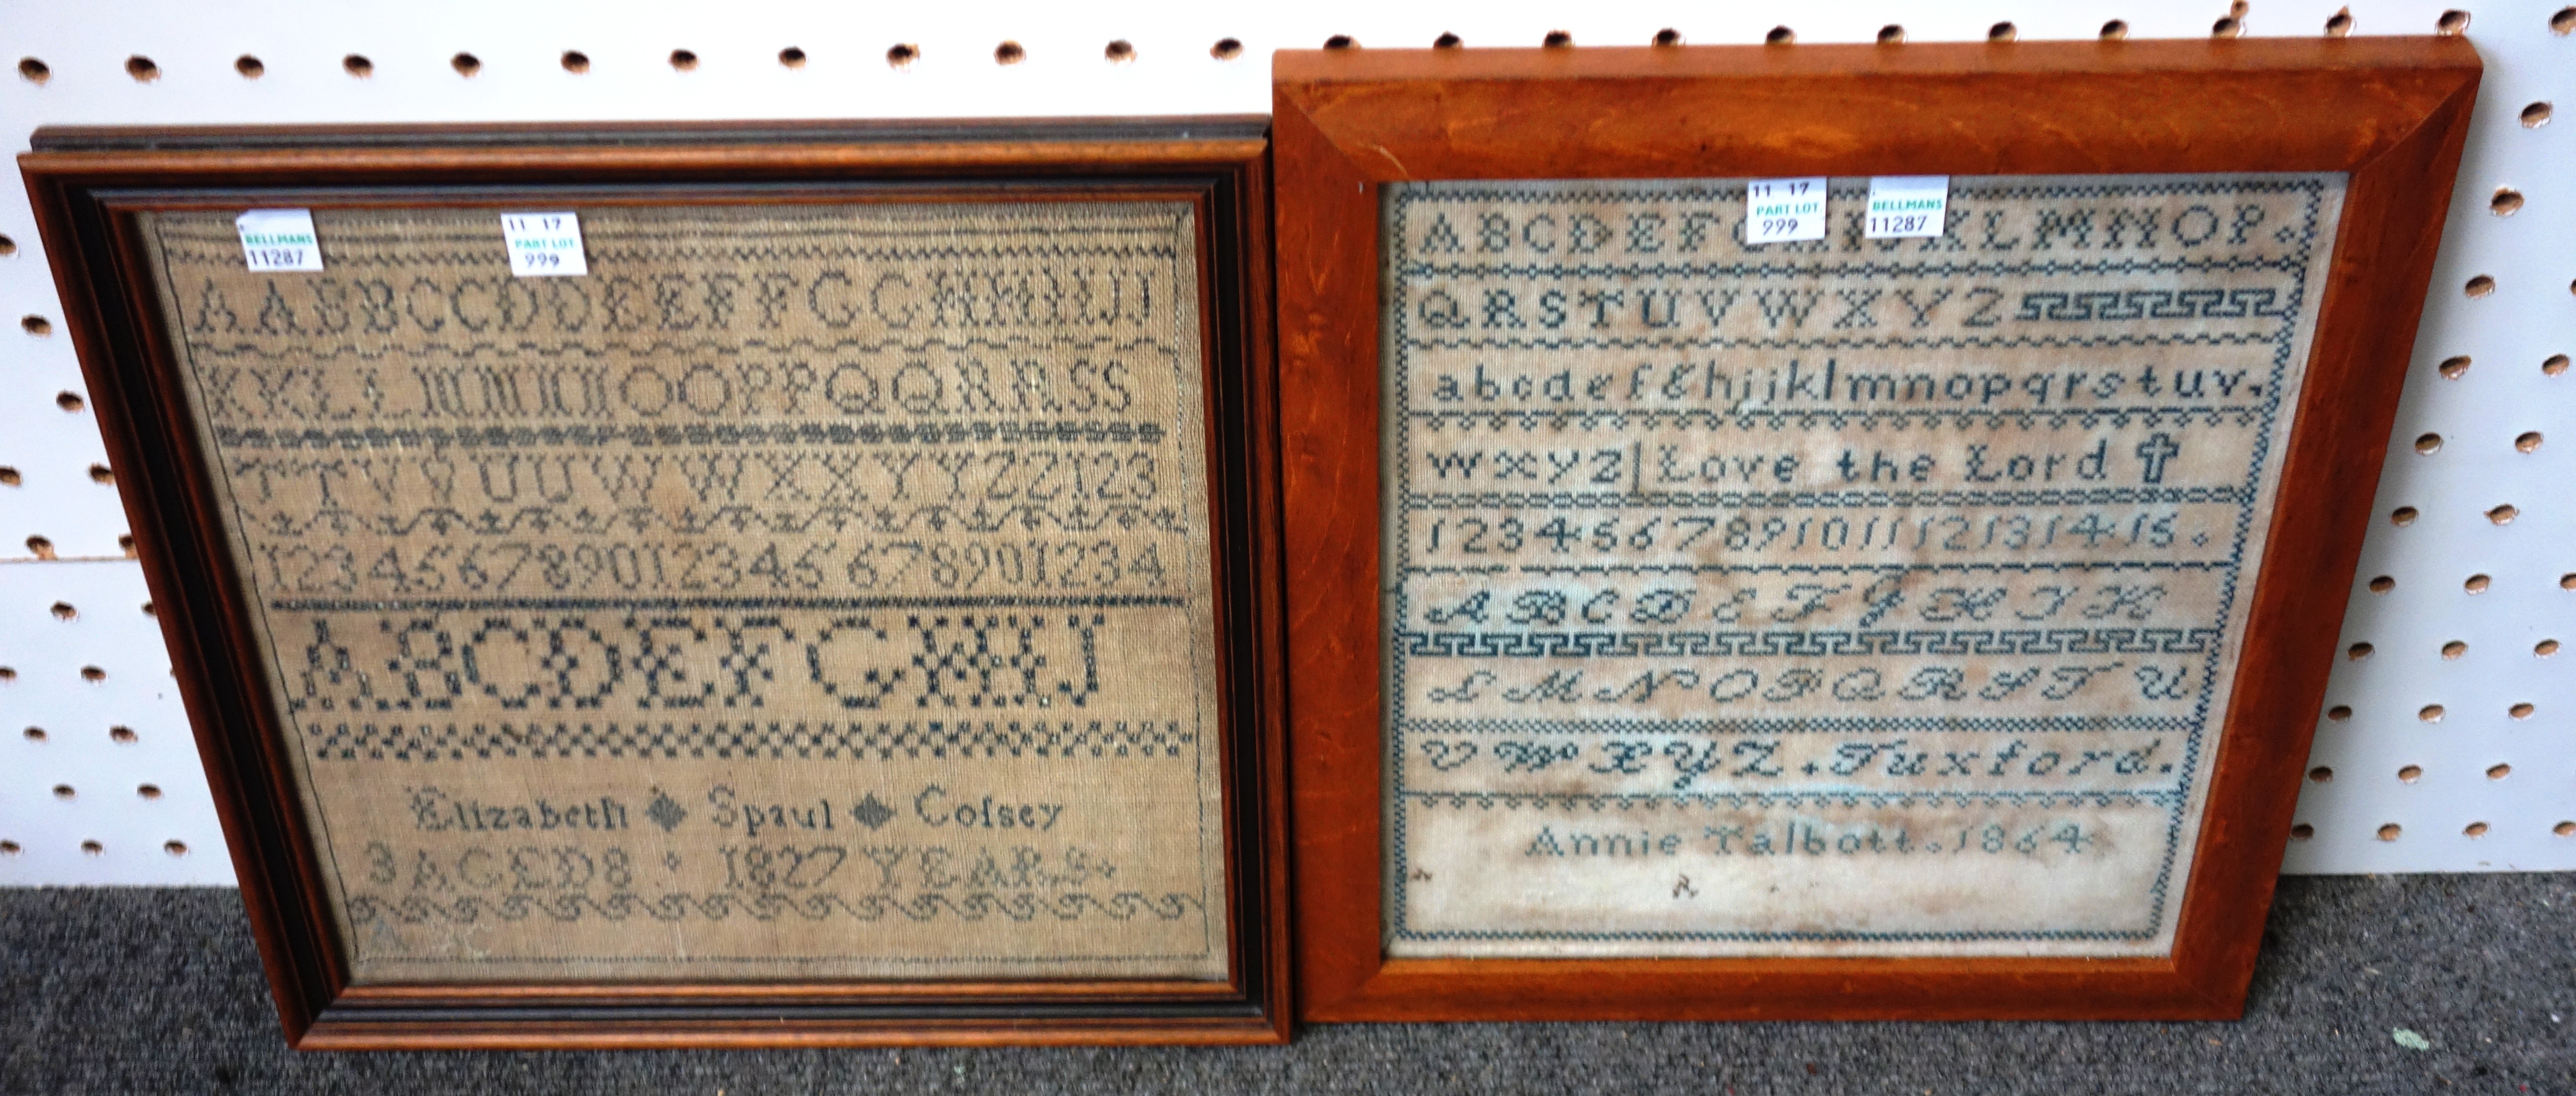 BELLMANS
11287
11 17
PART LOT
999
A A B B C C D D E E F F G G H H I I J J
K K L L M M N N O O P P Q Q R R S S
T T V V U U W W X X Y Y Z Z 1 2 3
1 2 3 4 5 6 7 8 9 0 1 2 3 4 5 6 7 8 9 0 1 2 3 4
A B C D E F G H I J
Elizabeth Spaul Cofsey
3 AGED 8 1827 YEARS
A B C
11 17
PART LOT
999
BELLMANS
11287
A B C D E F G K L M N O P.
Q R S T U V W X Y Z
a b c d e f g h i j k l m n o p q r s t u v.
w x y z | Love the Lord
1 2 3 4 5 6 7 8 9 10 11 12 13 14 15.
A B C D E F G H I K
L M N O P Q R S T U
V W X Y Z . Tuxford.
Annie Talbott. 1864